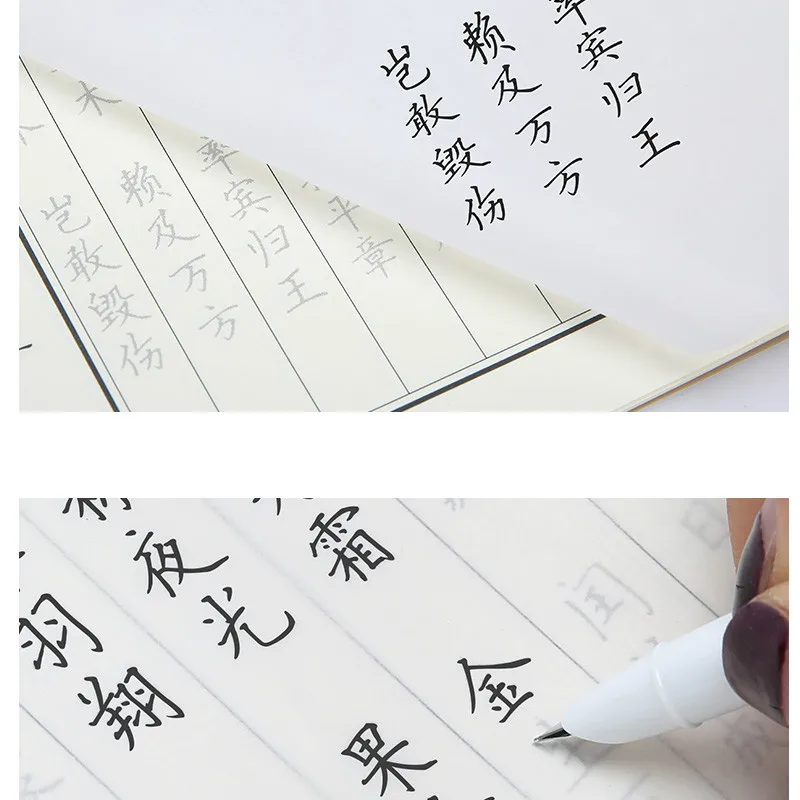 率宾归王
赖及万方
岂敢毁伤
平章
率宾归王
赖及万方
木
岂敢毁伤
闰
霜 金
夜光 果
羽翔